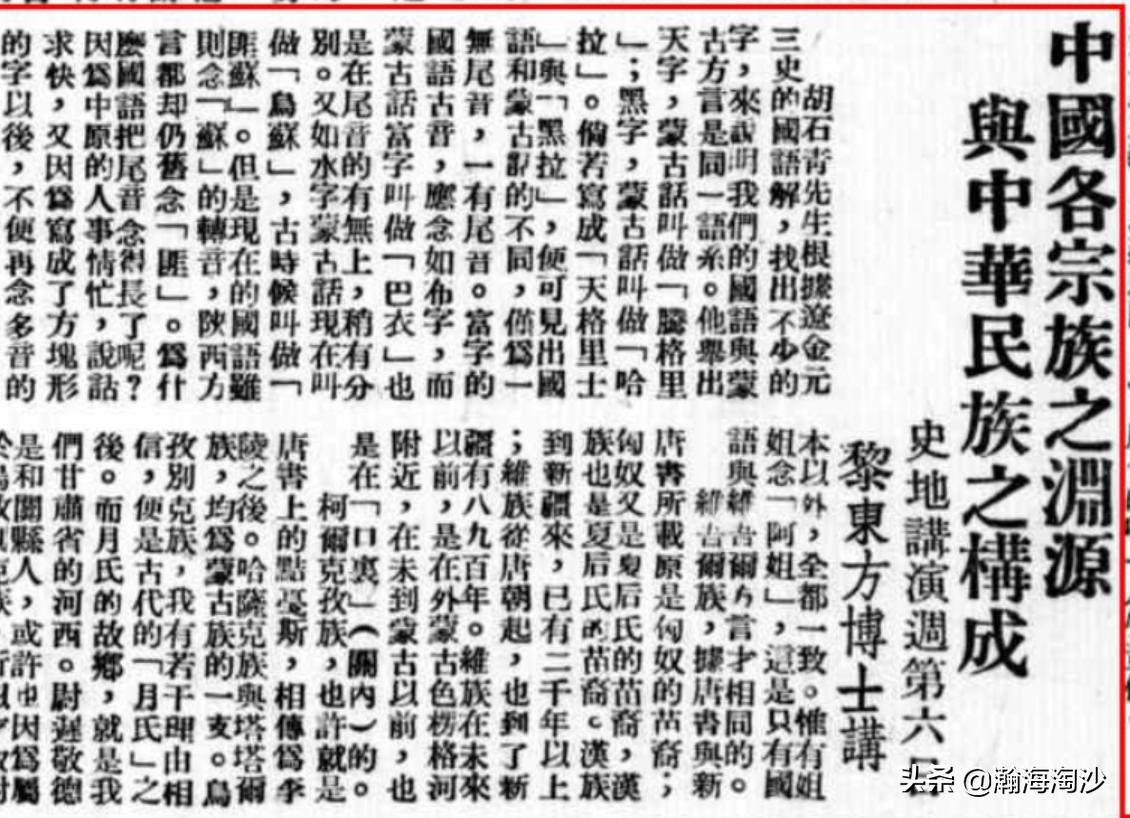 中國各宗族之淵源
與中華民族之構成
史地講演週第六
黎東方博士講
胡石青先生根據遼金元
三史的國語解，找出不少的
字，來說明我們的國語與蒙
古方言是同一語系。他舉出
天字，蒙古話叫做「騰格里
」；黑字，蒙古話叫做「哈
拉」。倘若寫成「天格里士
」與「黑拉」，便可見出國
語和蒙古語的不同，僅爲一
無尾音，一有尾音。富字的
國語古音，應念如布字，而
蒙古話富字叫做「巴衣」也
是在尾音的有無上，稍有分
別。又如水字蒙古話現在叫
做「烏蘇」，古時候叫做「
匪蘇」。但是現在的國語雖
則念「蘇」的轉音，陝西方
言都却仍舊念「匪」。爲什
麼國語把尾音念得長了呢？
因爲中原的人事情忙，說話
求快，又因爲寫成了方塊形
的字以後，不便再念多音的
本以外，全都一致。惟有姐
姐念「阿姐」，這是只有國
語與維吾爾方言才相同的。
維吾爾族，據唐書與新
唐書所載原是匈奴的苗裔；
匈奴又是夏后氏的苗裔，漢
族也是夏后氏的苗裔。漢族
到新疆來，已有二千年以上
；維族從唐朝起，也到了新
疆有八九百年。維族在未來
以前，是在外蒙古色楞格河
附近，在未到蒙古以前，也
是在「口裏」（關內）的。
柯爾克孜族，也許就是
唐書上的黠戛斯，相傳爲李
陵之後。哈薩克族與塔塔爾
族，均爲蒙古族的一支。烏
孜別克族，我有若干理由相
信，便是古代的「月氏」之
後。而月氏的故鄉，就是我
們甘肅省的河西。尉遲敬德
是和闐縣人，或許也因爲屬
头条 @瀚海淘沙